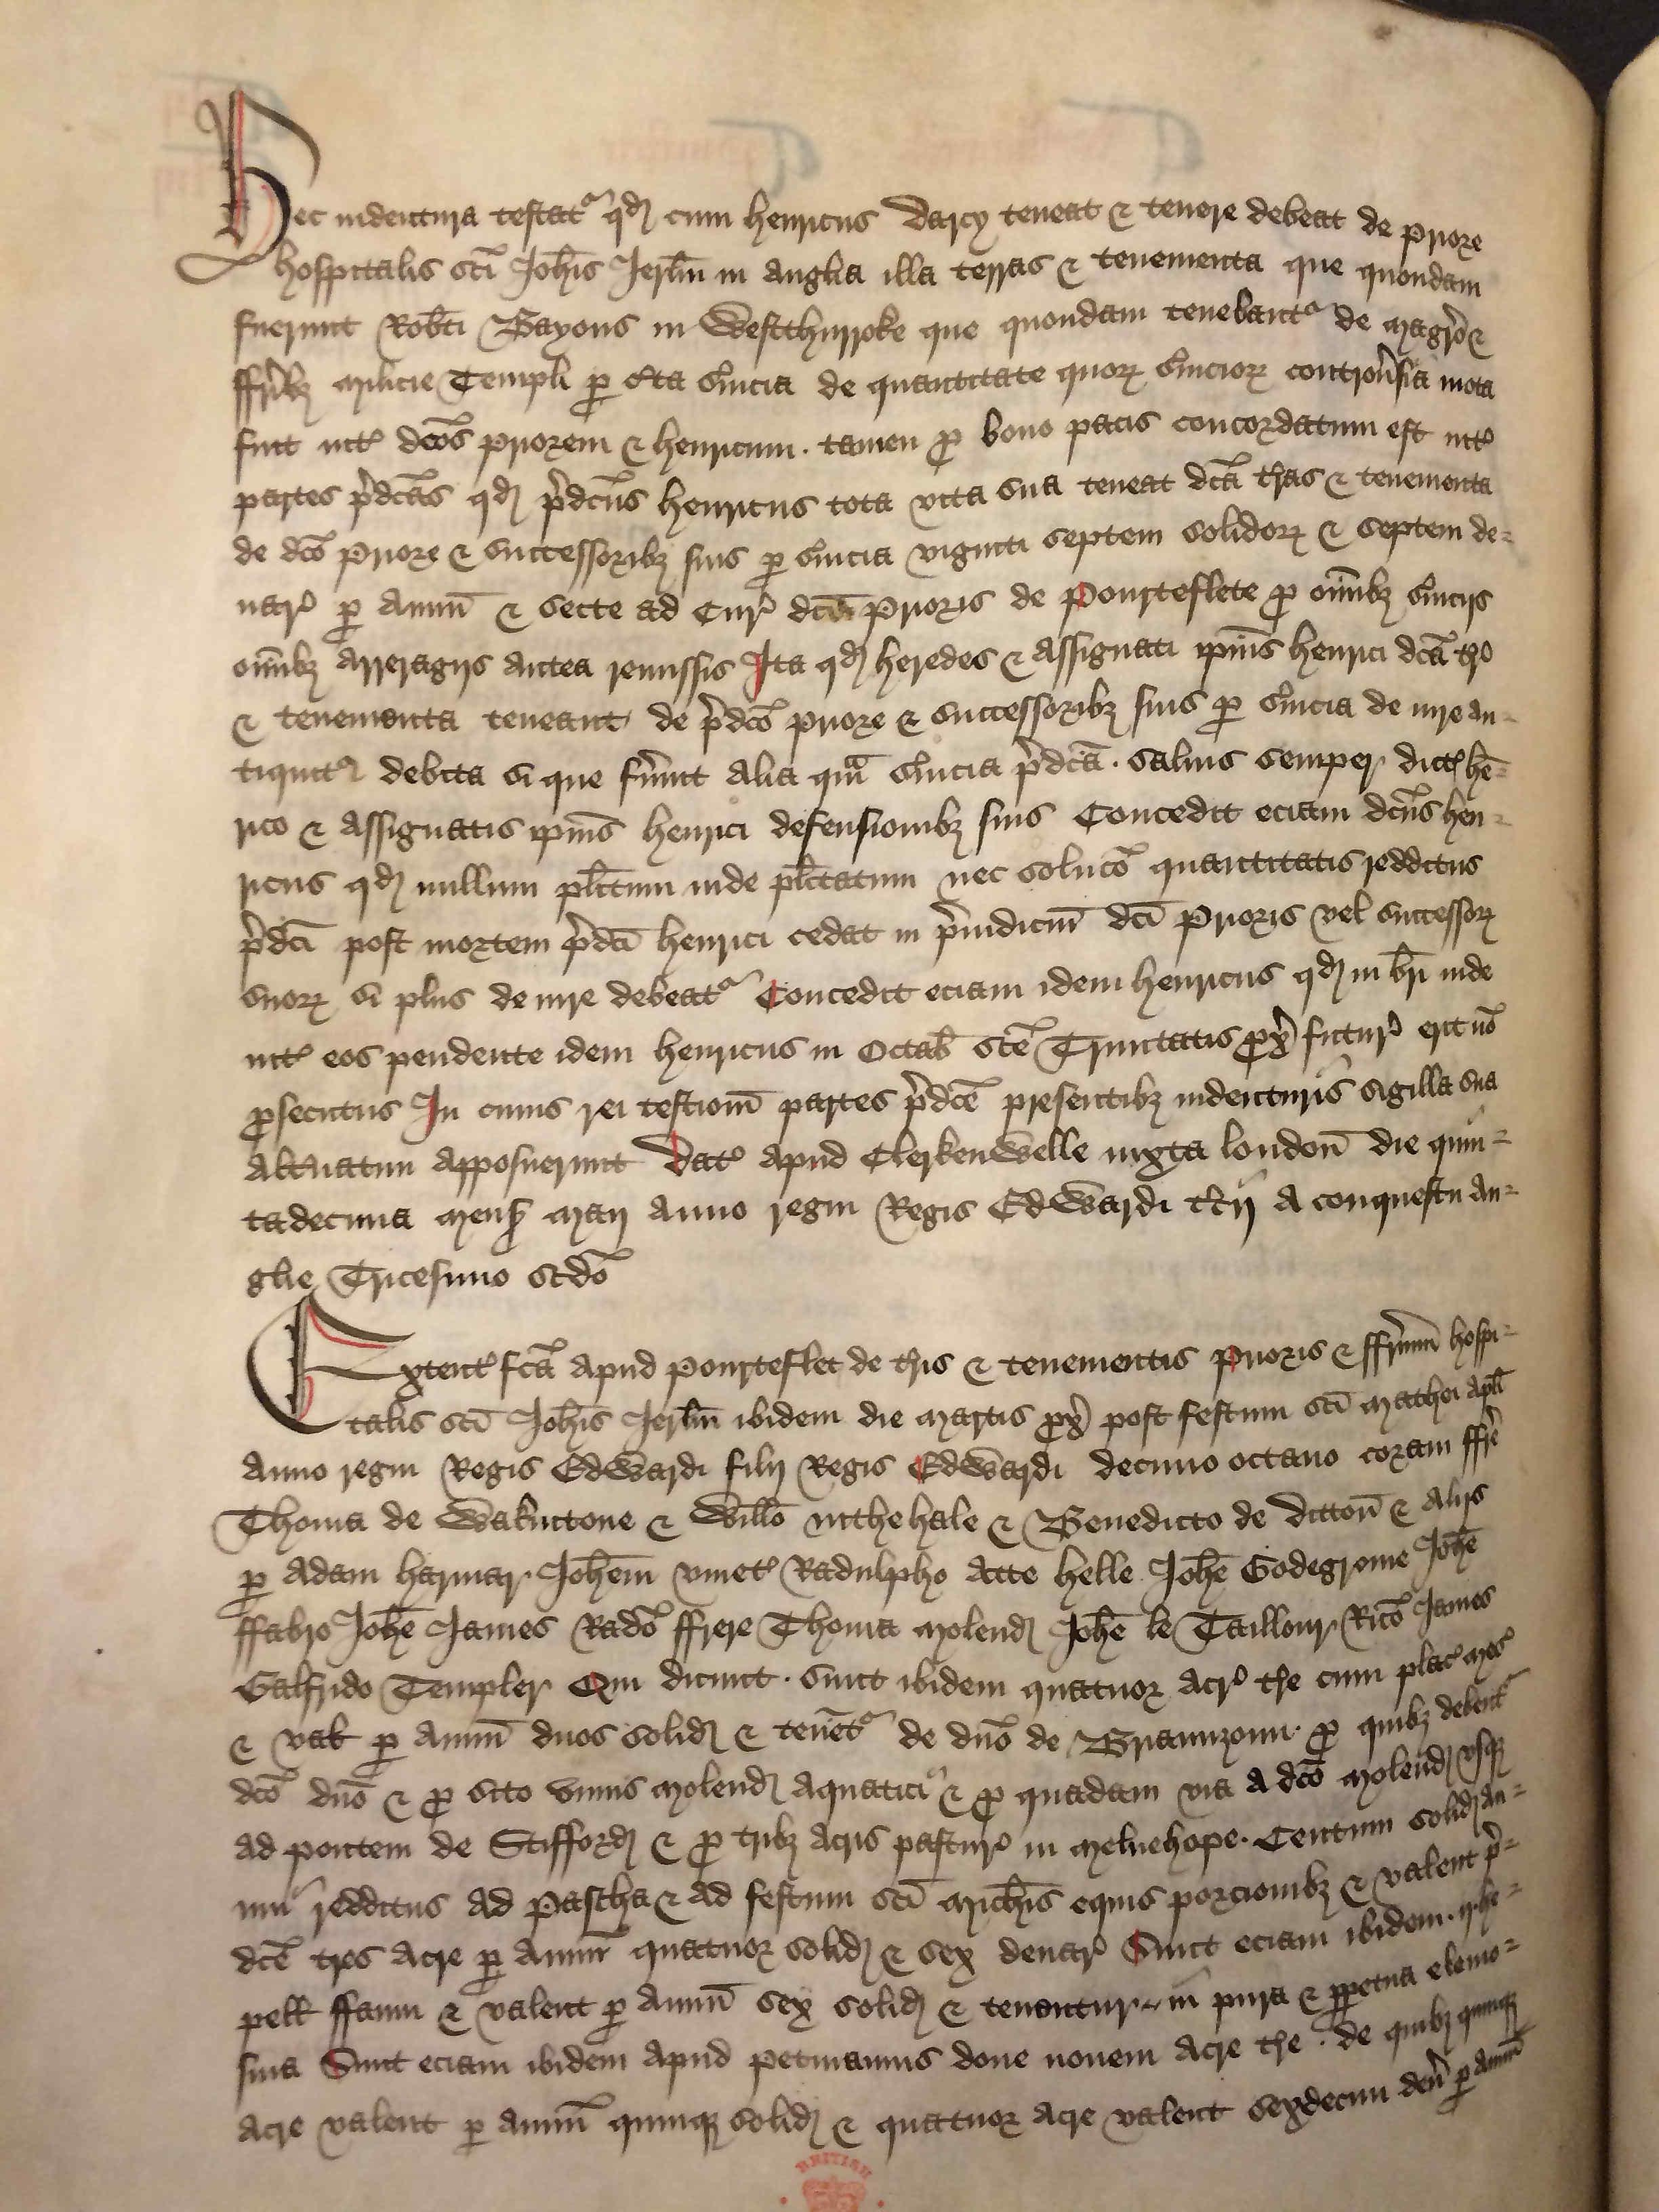 Hec indentura testat' qd cum henricus Darcy teneat & tenere debeat de priore
hospitalis sci Johis Jerlm in anglia illa terras & tenementa que quondam
fuerunt Robti Bayous in Westthurroke que quondam tenebant' de magro &
ffribz milicie Templi p cta suicia de quantitate quor suicior controusia mota
fuit int' dcos priorem & henricum . tamen p bono pacis concordatum est int'
partes pdcas qd pdcus henricus tota vita sua teneat dca tras & tenementa
de dco priore & successoribz suis p suicia viginti septem solidor & septem de-
nar' p annu & secte ad Cur' dci prioris de Pourteflete p omibz suiciis
omibz arreragiis antea remissis Ita qd heredes & assignati ipius henrici dca tr'
& tenementa teneant de pdco priore & successoribz suis p suicia de iure an-
tiquit' debita si que fuint alia qm suicia pdca . saluis semper dict' hen-
rico & assignatis ipius henrici defensionibz suis Concedit eciam dcus hen-
ricus qd nullum plitum inde plitatum nec soluco quantitatis redditus
pdci post mortem pdci henrici cedat in piudiciu dci prioris vel successor
suor si plus de iure debeat' Concedit eciam idem henricus qd in bri inde
int' eos pendente idem henricus in Octab sce Trinitatis px futur' erit no
psecutus In cuius rei testioum partes pdce presentibz indenturis sigilla sua
altnatim apposuerunt Dat' apud Clerkenwelle iuxta london die quin-
tadecima mens maii anno regni Regis Edwardi tcii a conquestu an-
glie Tricesimo scdo
Extent' fca apud pourteflet de tris & tenementis prioris & ffrum hospi-
talis sci Johis Jerlm ibidem die martis px post festum sci mathei apli
anno regni Regis Edwardi filii Regis Edwardi decimo octauo coram ffre
Thoma de Wakintone & Willo inthehale & Benedicto de ditton & aliis
p adam harmar Johem vinet' Radulpho atte helle Johe Godegrome Johe
ffabro Johe James Rado ffrere Thoma molend Johe le Taillour Rico James
Galfrido Templer Qui dicunt . sunt ibidem quatuor acr' tre cum plac' mes'
& val p annu duos solid & tenet' de dno de Briaunzoun . p quibz debent'
dco dno & p situ vnius molend aquatici & p quadam via a dco molend vsq
ad pontem de Stifford & p tribz acris pastur' in meluehope . Centum solid an-
nui redditus ad pascha & ad festum sci michis equis porcionibz & valent p-
dce tres acre p annu quatuor solid & sex denar' Sunt eciam ibidem . ij . he-
pell ffanni & valent p annu sex solid & tenentur in pura & ppetua elemo-
sina Sunt eciam ibidem apud petmannus done nouem acre tre . de quibz quinq
acre valent p annu quinq solid & quatuor acre valent sexdecim den p annu
BRITISH